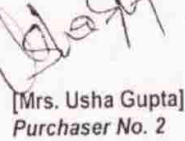 [Mrs. Usha Gupta]
Purchaser No. 2